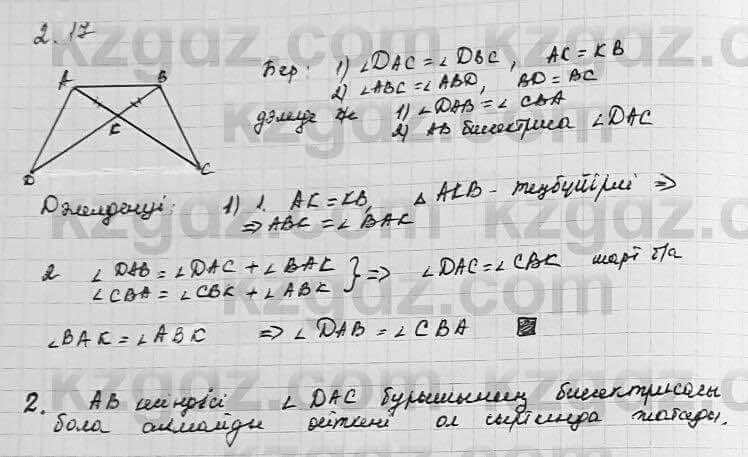 2.17
A B
K
D C
Бер: 1) ∠DAC = ∠DBC, AK = KB
2) ∠ABC = ∠ABD, BD = BC
дәлелдеу 1) ∠DAB = ∠CBA
2) AB биссектриса ∠DAC
Дәлелденуі: 1) 1. AK = KB, △ AKB - теңбүйірлі ⇒
⇒ ABK = ∠BAK
2 ∠DAB = ∠DAC + ∠BAK
∠CBA = ∠CBK + ∠ABK } ⇒ ∠DAC = ∠CBK шарт б/а
∠BAK = ∠ABK ⇒ ∠DAB = ∠CBA
2. AB кесіндісі ∠DAC бұрышының биссектрисасы
бола алмайды өйткені ол сыртында жатады.
kzgdz.com